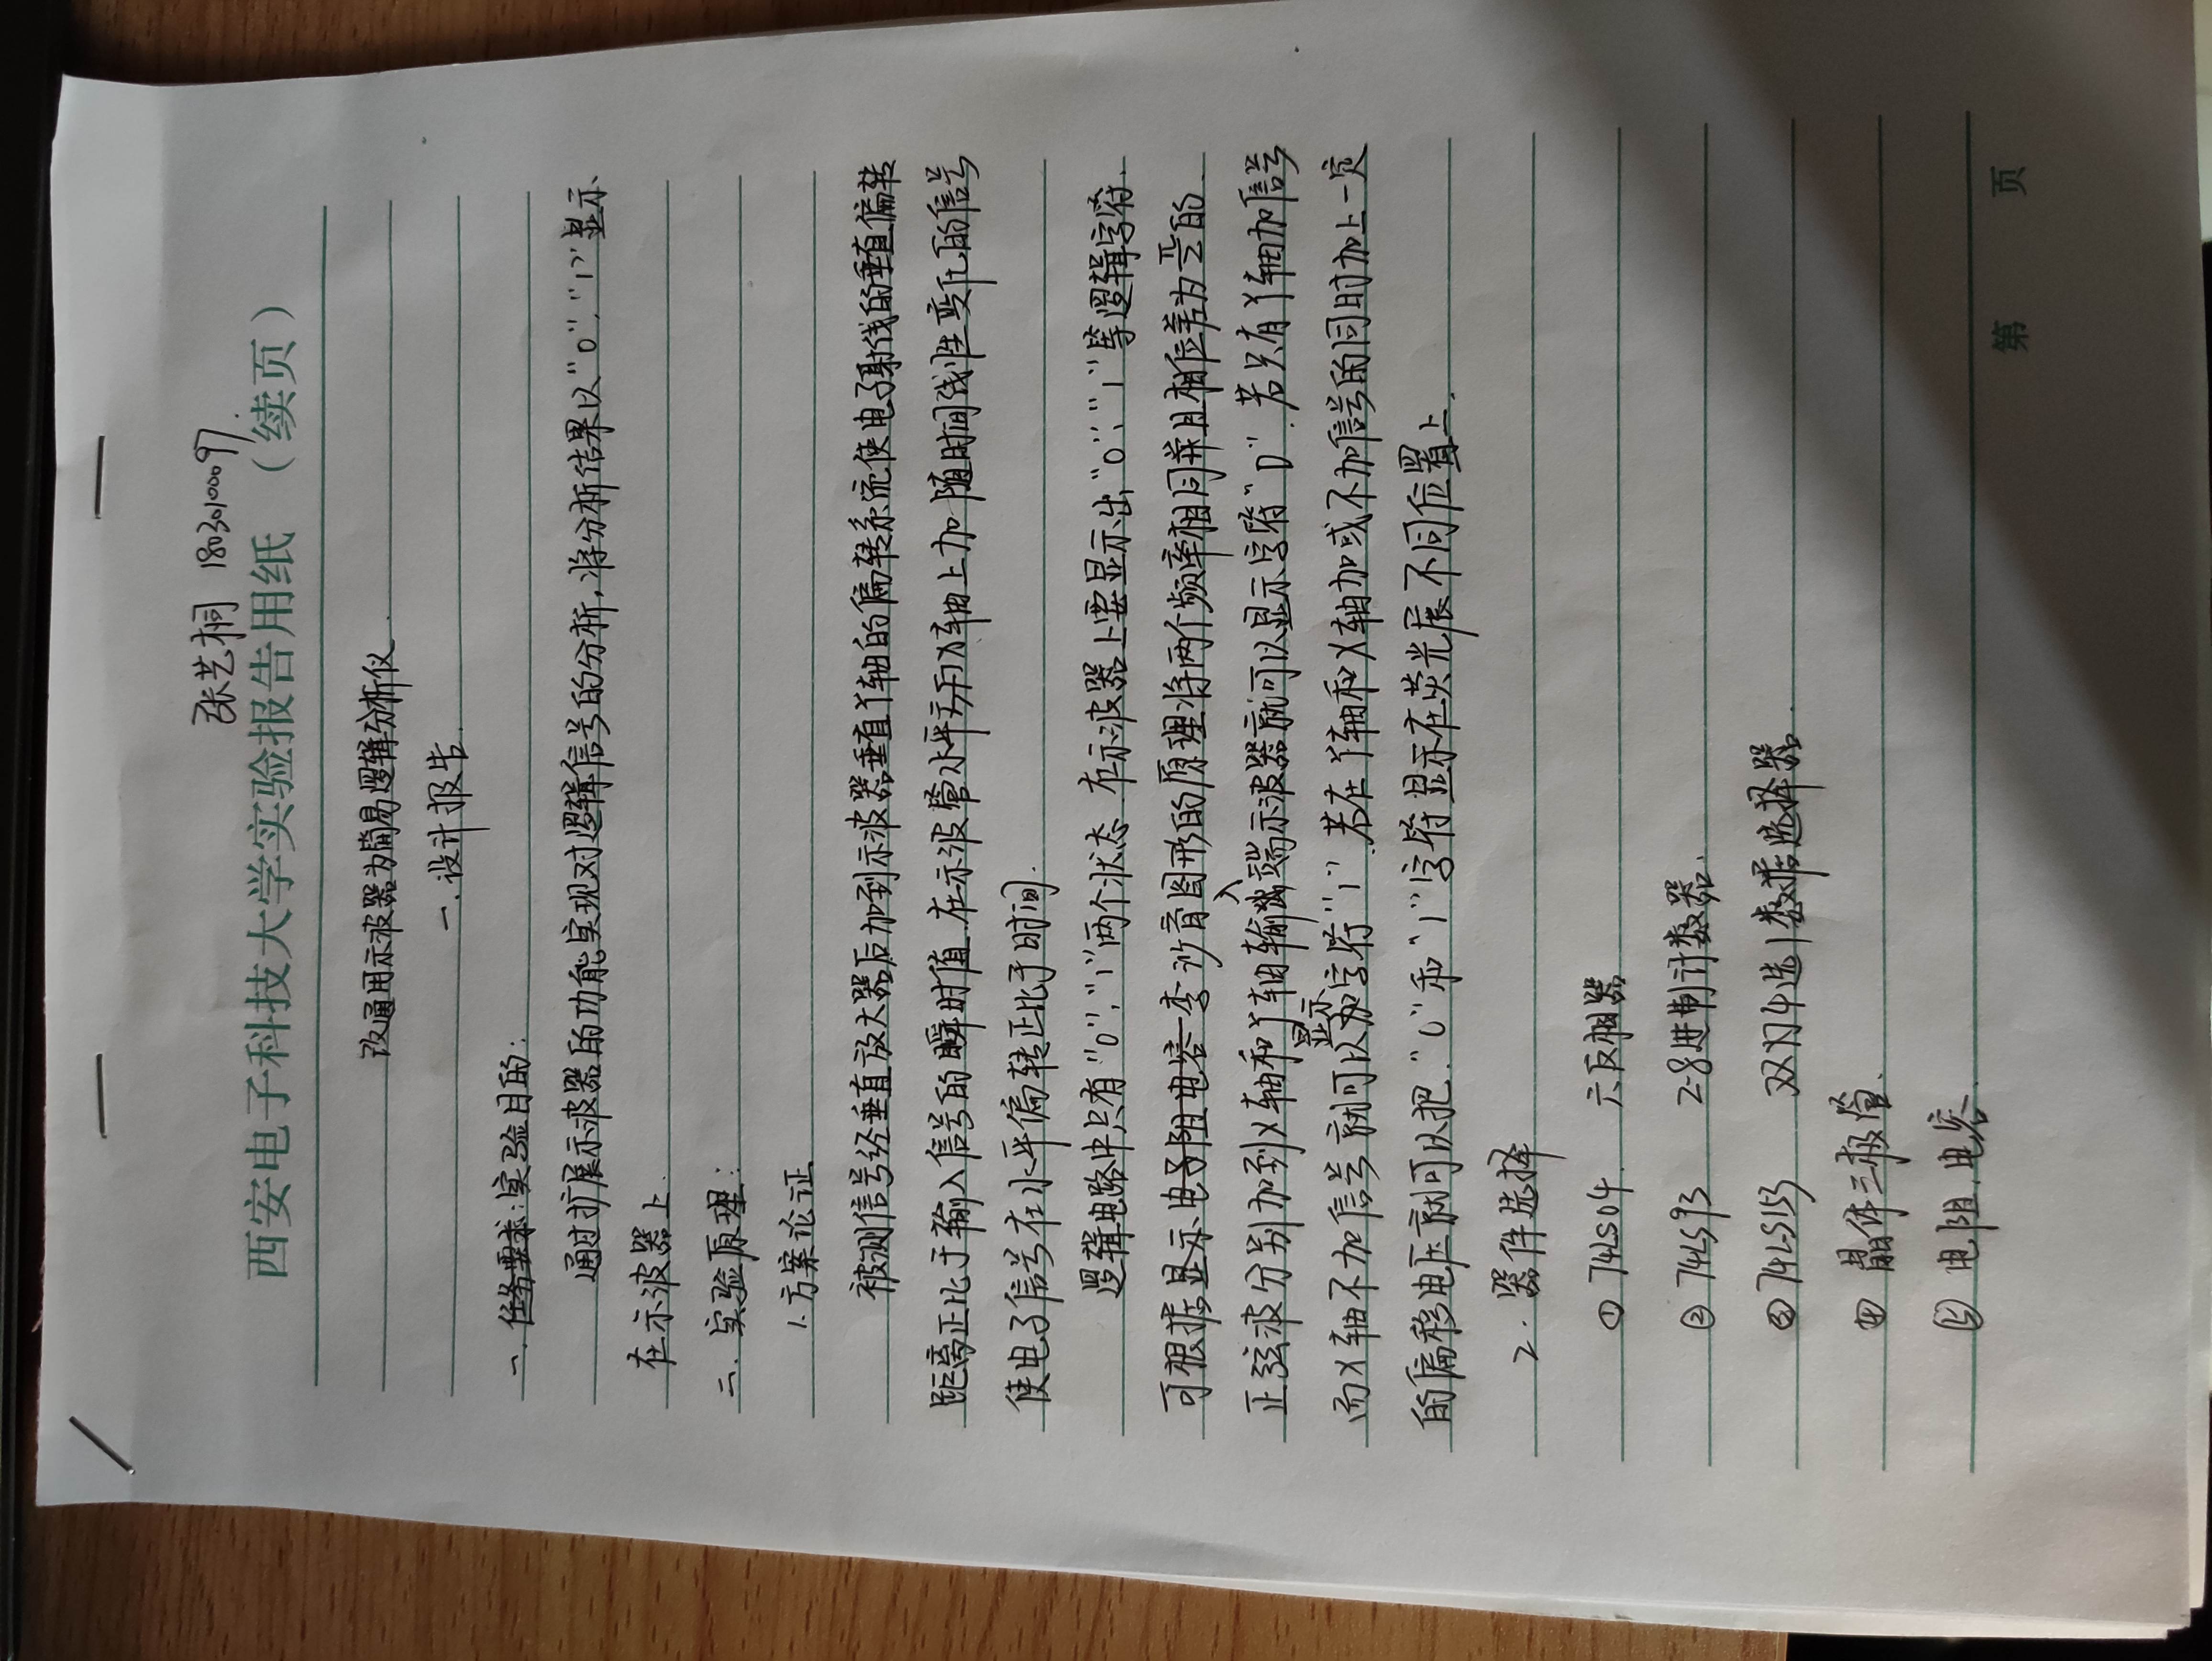 张艺桐 18030100097.
西安电子科技大学实验报告用纸 （续页）
改通用示波器为简易逻辑分析仪.
一.设计报告.
一. 任务要求:实验目的:
通过扩展示波器的功能实现对逻辑信号的分析,将分析结果以"0"."1"显示
在示波器上.
二. 实验原理:
1.方案论证
被测信号经垂直放大器后加到示波器垂直Y轴的偏转系统使电子射线的垂直偏转
距离正比于输入信号的瞬时值.在示波管水平方向X轴上加随时间线性变化的信号
使电子信号在水平偏转正比于时间.
逻辑电路中只有"0"."1"两个状态.在示波器上要显示出"0"."1"等逻辑字符.
可根据显示电子阻电容李沙育图形的原理将两个频率相同并且相位差为π/2的
正弦波分别加到X轴和Y轴输入端示波器就可以显示字符"0".若只有Y轴加信号
而X轴不加信号就可以显示字符"1".若在Y轴和X轴加或不加信号的同时加上一定
的偏移电压就可以把."0"和"1"字符显示在荧光屏不同位置上.
2. 器件选择
① 74LS04. 六反相器
② 74LS93 2-8进制计数器.
③ 74LS153 双4选1数据选择器.
④ 晶体三极管.
⑤ 电阻.电容.
第 页